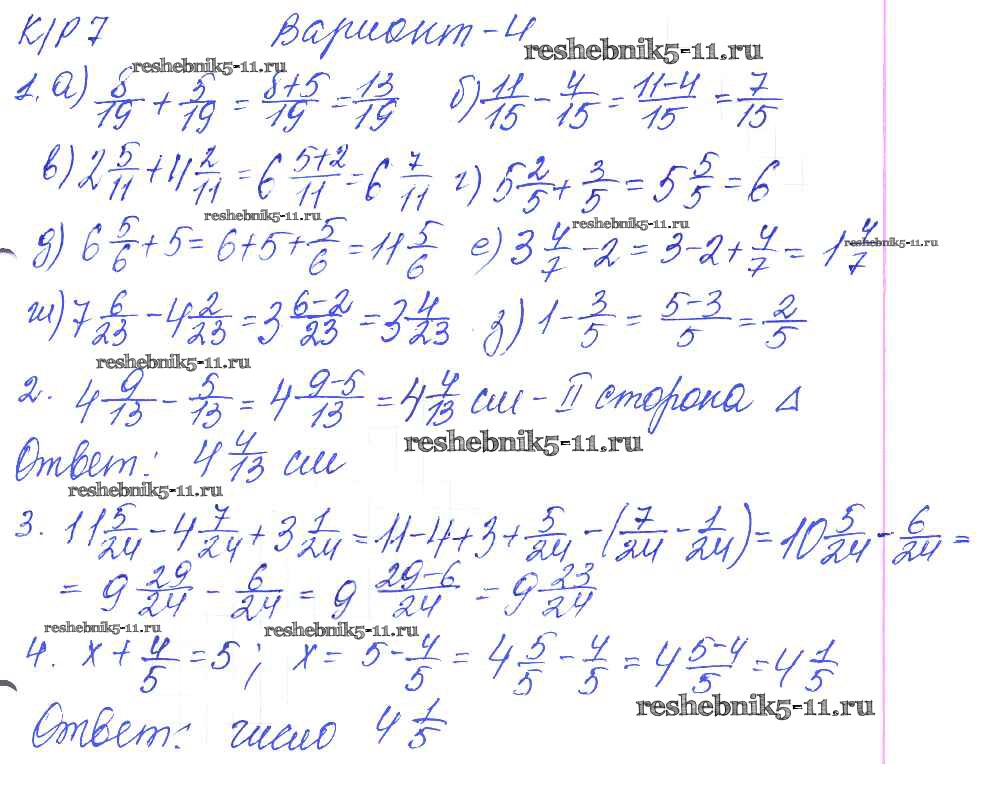 К/Р 7 Вариант-4
reshebnik5-11.ru
reshebnik5-11.ru
1. а) 8/19 + 5/19 = 8+5/19 = 13/19 б) 11/15 - 4/15 = 11-4/15 = 7/15
в) 2 5/11 + 4 2/11 = 6 5+2/11 = 6 7/11 г) 5 2/5 + 3/5 = 5 5/5 = 6
reshebnik5-11.ru
reshebnik5-11.ru
д) 6 5/6 + 5 = 6+5+5/6 = 11 5/6 е) 3 4/7 - 2 = 3-2+4/7 = 1 4/7
reshebnik5-11.ru
ж) 7 6/23 - 4 2/23 = 3 6-2/23 = 3 4/23 з) 1 - 3/5 = 5-3/5 = 2/5
reshebnik5-11.ru
2. 4 9/13 - 5/13 = 4 9-5/13 = 4 4/13 см - II сторона Δ
reshebnik5-11.ru
Ответ: 4 4/13 см
reshebnik5-11.ru
3. 11 5/24 - 4 7/24 + 3 1/24 = 11-4+3+5/24-(7/24-1/24) = 10 5/24 - 6/24 =
= 9 29/24 - 6/24 = 9 29-6/24 = 9 23/24
reshebnik5-11.ru
reshebnik5-11.ru
4. x + 4/5 = 5; x = 5 - 4/5 = 4 5/5 - 4/5 = 4 5-4/5 = 4 1/5
reshebnik5-11.ru
Ответ: число 4 1/5